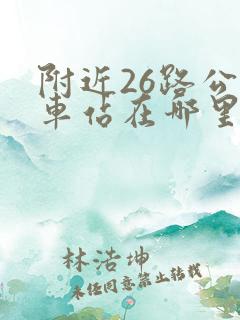 附近26路公
車站在哪里
林浩坤
未任同意禁止转载